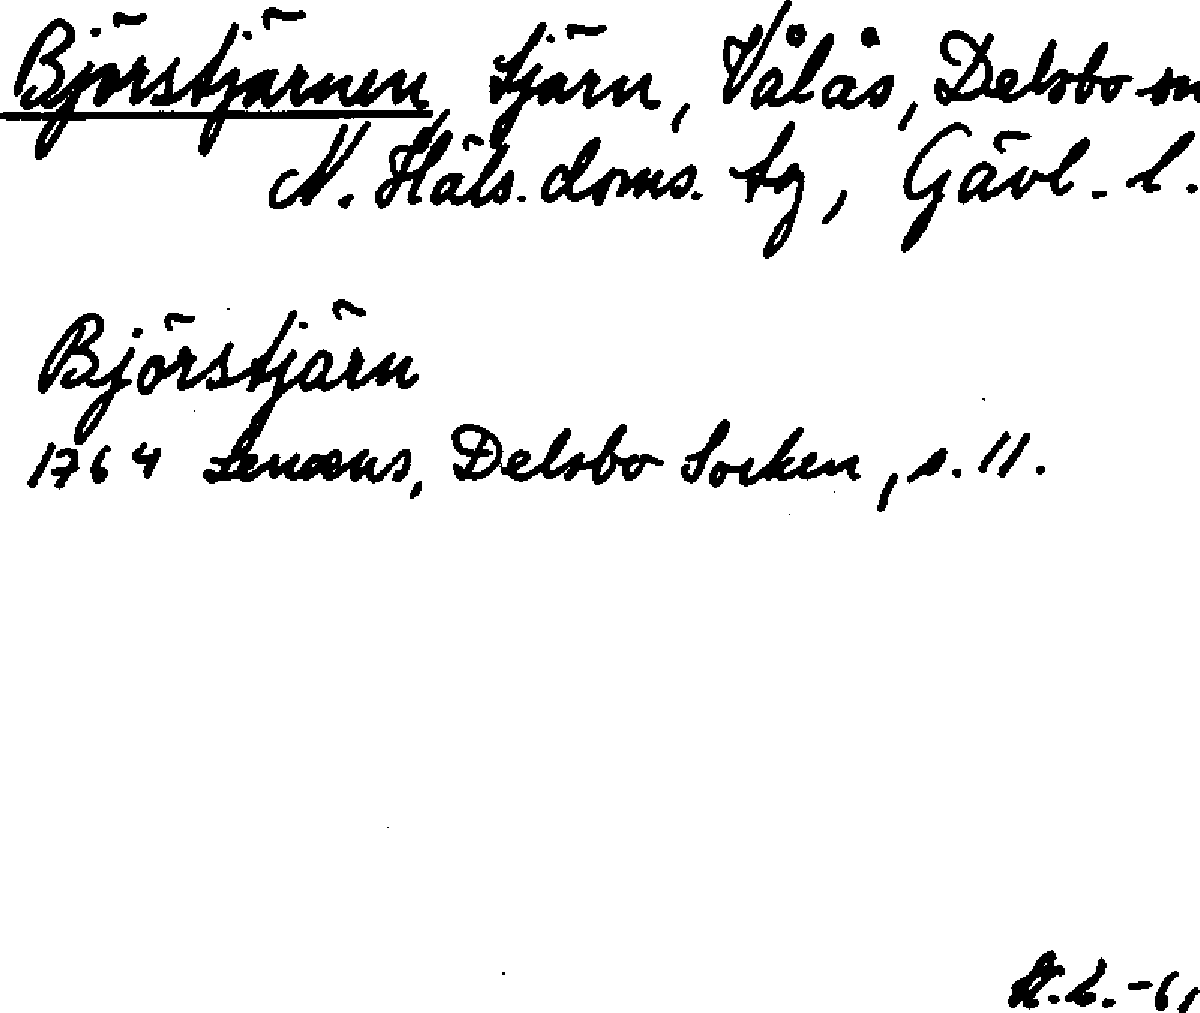 Björstjärnen, tjärn, Vålås, Delsbo sn
N. Häls. doms. tg, Gävl. l.
Björstjärn
1764 Lenæus, Delsbo Socken, s. 11.